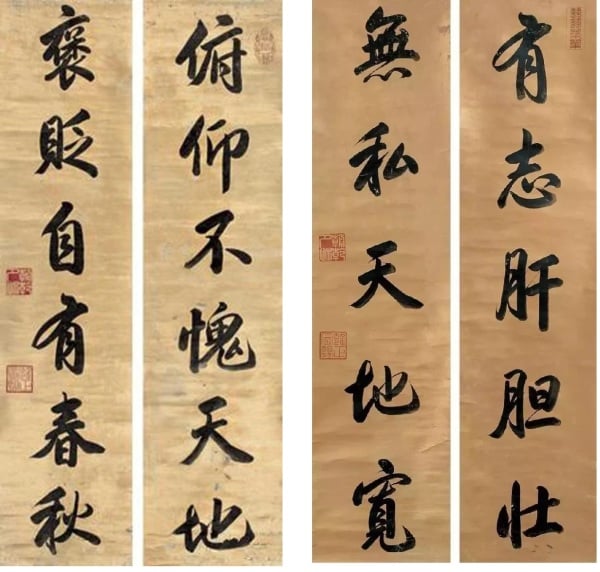 有志肝胆壮
無私天地寬
俯仰不愧天地
褒貶自有春秋